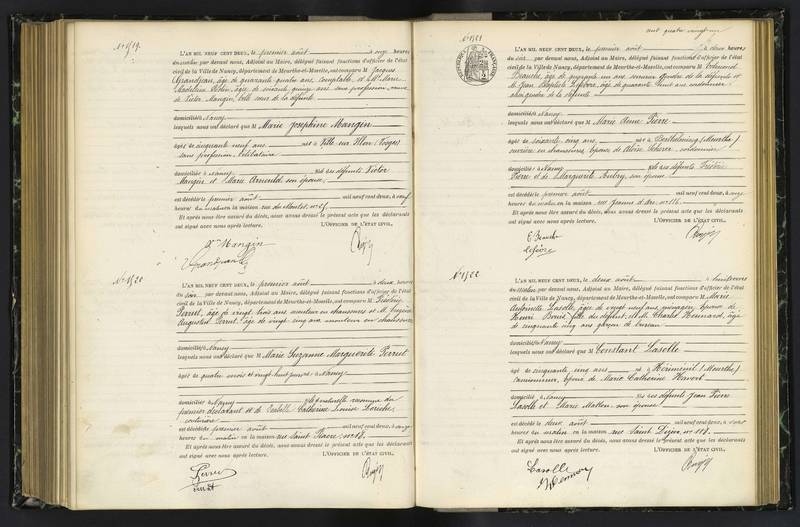 N° 1519
L'AN MIL NEUF CENT DEUX, le premier août à onze heures
du matin par devant nous, Adjoint au Maire, délégué faisant fonctions d'officier de l'état
civil de la Ville de Nancy, département de Meurthe-et-Moselle, ont comparu M. Jacques
Grandjean, âgé de quarante quatre ans, comptable et Marie
Madeleine âgée de soixante quinze ans sans profession, veuve
de Victor Mangin, belle sœur de la défunte
domiciliés à Nancy
lesquels nous ont déclaré que M Marie Joséphine Mangin
âgée de cinquante neuf ans née à Ville sur Illon (Vosges)
sans profession, célibataire
domiciliée à Nancy fille des défunts Victor
Mangin et Marie Arnould son épouse
est décédée le premier août mil neuf cent deux, à neuf
heures du matin en la maison rue du n° 25
Et après nous être assuré du décès, nous avons dressé le présent acte que les déclarants
ont signé avec nous après lecture. L'OFFICIER DE L'ÉTAT CIVIL,
Mangin
Grandjean
N° 1520
L'AN MIL NEUF CENT DEUX, le premier août à deux heures
du soir par devant nous, Adjoint au Maire, délégué faisant fonctions d'officier de l'état
civil de la Ville de Nancy, département de Meurthe-et-Moselle, ont comparu M.
Perrut, âgé de vingt trois ans monteur en chaussures et M.
Auguste Perrut âgé de vingt cinq ans monteur en chaussures
domiciliés à Nancy
lesquels nous ont déclaré que M Marie Suzanne Marguerite Perrut
âgée de quatre mois et vingt huit jours née à Nancy
domiciliée à Nancy fille naturelle reconnue du
premier déclarant et de Catherine Louise
couturière
est décédée le premier août mil neuf cent deux, à onze
heures du matin en la maison rue Saint Fiacre n° 18
Et après nous être assuré du décès, nous avons dressé le présent acte que les déclarants
ont signé avec nous après lecture. L'OFFICIER DE L'ÉTAT CIVIL,
Perrut
cent quatre vingt
N° 1521
L'AN MIL NEUF CENT DEUX, le premier août à deux heures
du soir par devant nous, Adjoint au Maire, délégué faisant fonctions d'officier de l'état
civil de la Ville de Nancy, département de Meurthe-et-Moselle, ont comparu M. Edmond
âgé de quarante un ans gendre de la défunte et
M. Jean Baptiste Lefèvre, âgé de quarante huit ans cordonnier
aussi gendre de la défunte
domiciliés à Nancy
lesquels nous ont déclaré que M Marie Anne Pierre
âgée de soixante cinq ans née à Berthelming (Meurthe)
ouvrière en chaussures épouse de cordonnier
domiciliée à Nancy fille des défunts
Pierre et de Marguerite Aubry, son épouse
est décédée le premier août mil neuf cent deux, à onze
heures du matin en la maison rue Jeanne d'Arc n° 116
Et après nous être assuré du décès, nous avons dressé le présent acte que les déclarants
ont signé avec nous après lecture. L'OFFICIER DE L'ÉTAT CIVIL,
Lefèvre
N° 1522
L'AN MIL NEUF CENT DEUX, le deux août à huit heures
du matin par devant nous, Adjoint au Maire, délégué faisant fonctions d'officier de l'état
civil de la Ville de Nancy, département de Meurthe-et-Moselle, ont comparu M. Marie
Antoinette Lasolle âgée de vingt neuf ans ménagère, épouse de
Henri fille du défunt, et M. Charles âgé
de cinquante cinq ans garçon de bureau
domiciliés à Nancy
lesquels nous ont déclaré que M Constant Lasolle
âgé de cinquante cinq ans né à Hériménil (Meurthe)
camionneur, époux de Marie Catherine
domicilié à Nancy fils des défunts Jean Pierre
Lasolle et Marie son épouse
est décédé le deux août mil neuf cent deux, à
heures du matin en la maison rue Saint Dizier, n° 118
Et après nous être assuré du décès, nous avons dressé le présent acte que les déclarants
ont signé avec nous après lecture. L'OFFICIER DE L'ÉTAT CIVIL,
Lasolle